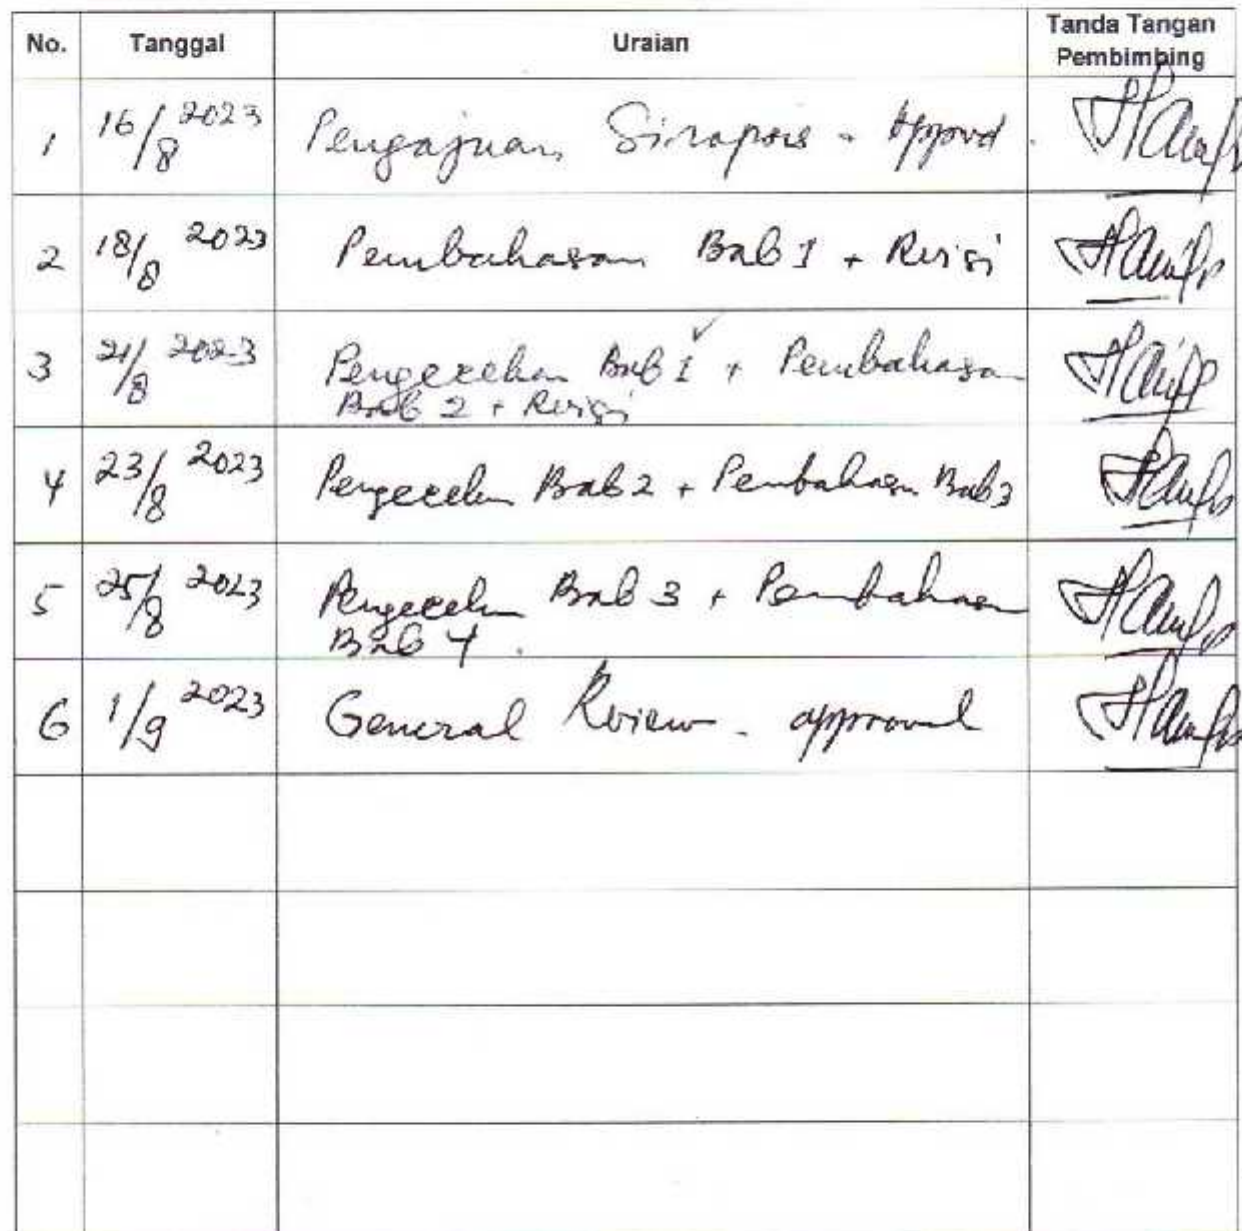 No. Tanggal Uraian Tanda Tangan
Pembimbing
1 16/8 2023 Pengajuan Sinopsis - Approvd
2 18/8 2023 Pembahasan Bab 1 + Revisi
3 21/8 2023 Pengecekan Bab 1 ✓ + Pembahasan
Bab 2 + Revisi
4 23/8 2023 Pengecekan Bab 2 + Pembahasan Bab 3
5 25/8 2023 Pengecekan Bab 3 + Pembahasan
Bab 4.
6 1/9 2023 General Review - approval